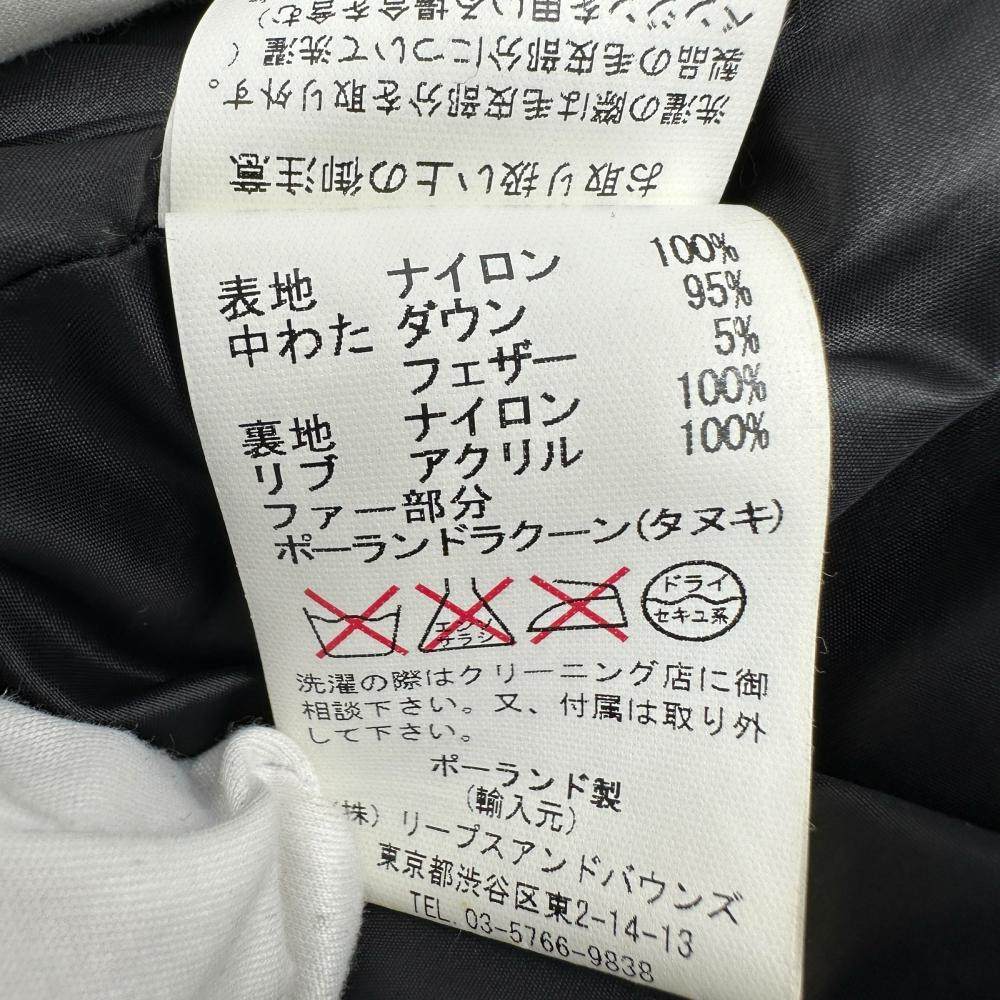 お取り扱い上の御注意
洗濯の際は毛皮部分を取り外す。
製品の毛皮部分について洗濯(
ベンジンを用いる場合を含む)
表地 ナイロン 100%
中わた ダウン 95%
フェザー 5%
裏地 ナイロン 100%
リブ アクリル 100%
ファー部分
ポーランドラクーン(タヌキ)
エンソ
サラシ
ドライ
セキユ系
洗濯の際はクリーニング店に御
相談下さい。又、付属は取り外
して下さい。
ポーランド製
(輸入元)
(株)リープスアンドバウンズ
東京都渋谷区東2-14-13
TEL.03-5766-9838